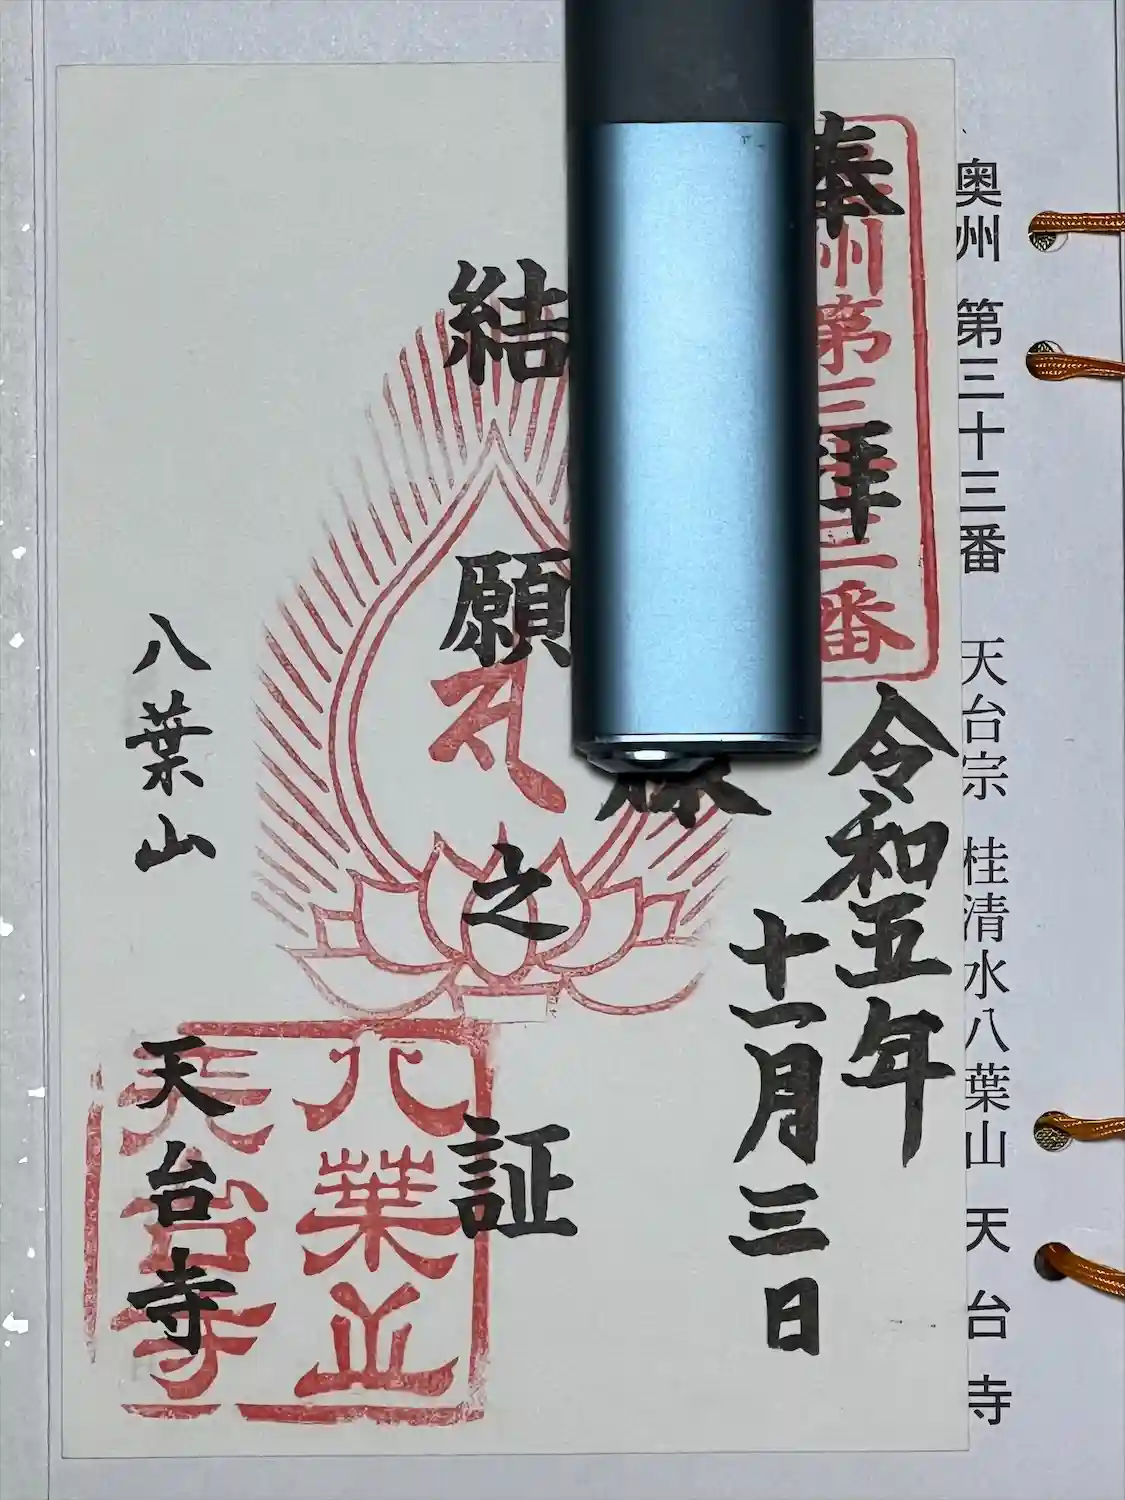 奥州 第三十三番 天台宗 桂清水八葉山 天台寺
奉拝
州第三十三番
令和五年
十一月三日
結願之証
八葉山
天台寺
八葉山
天台寺